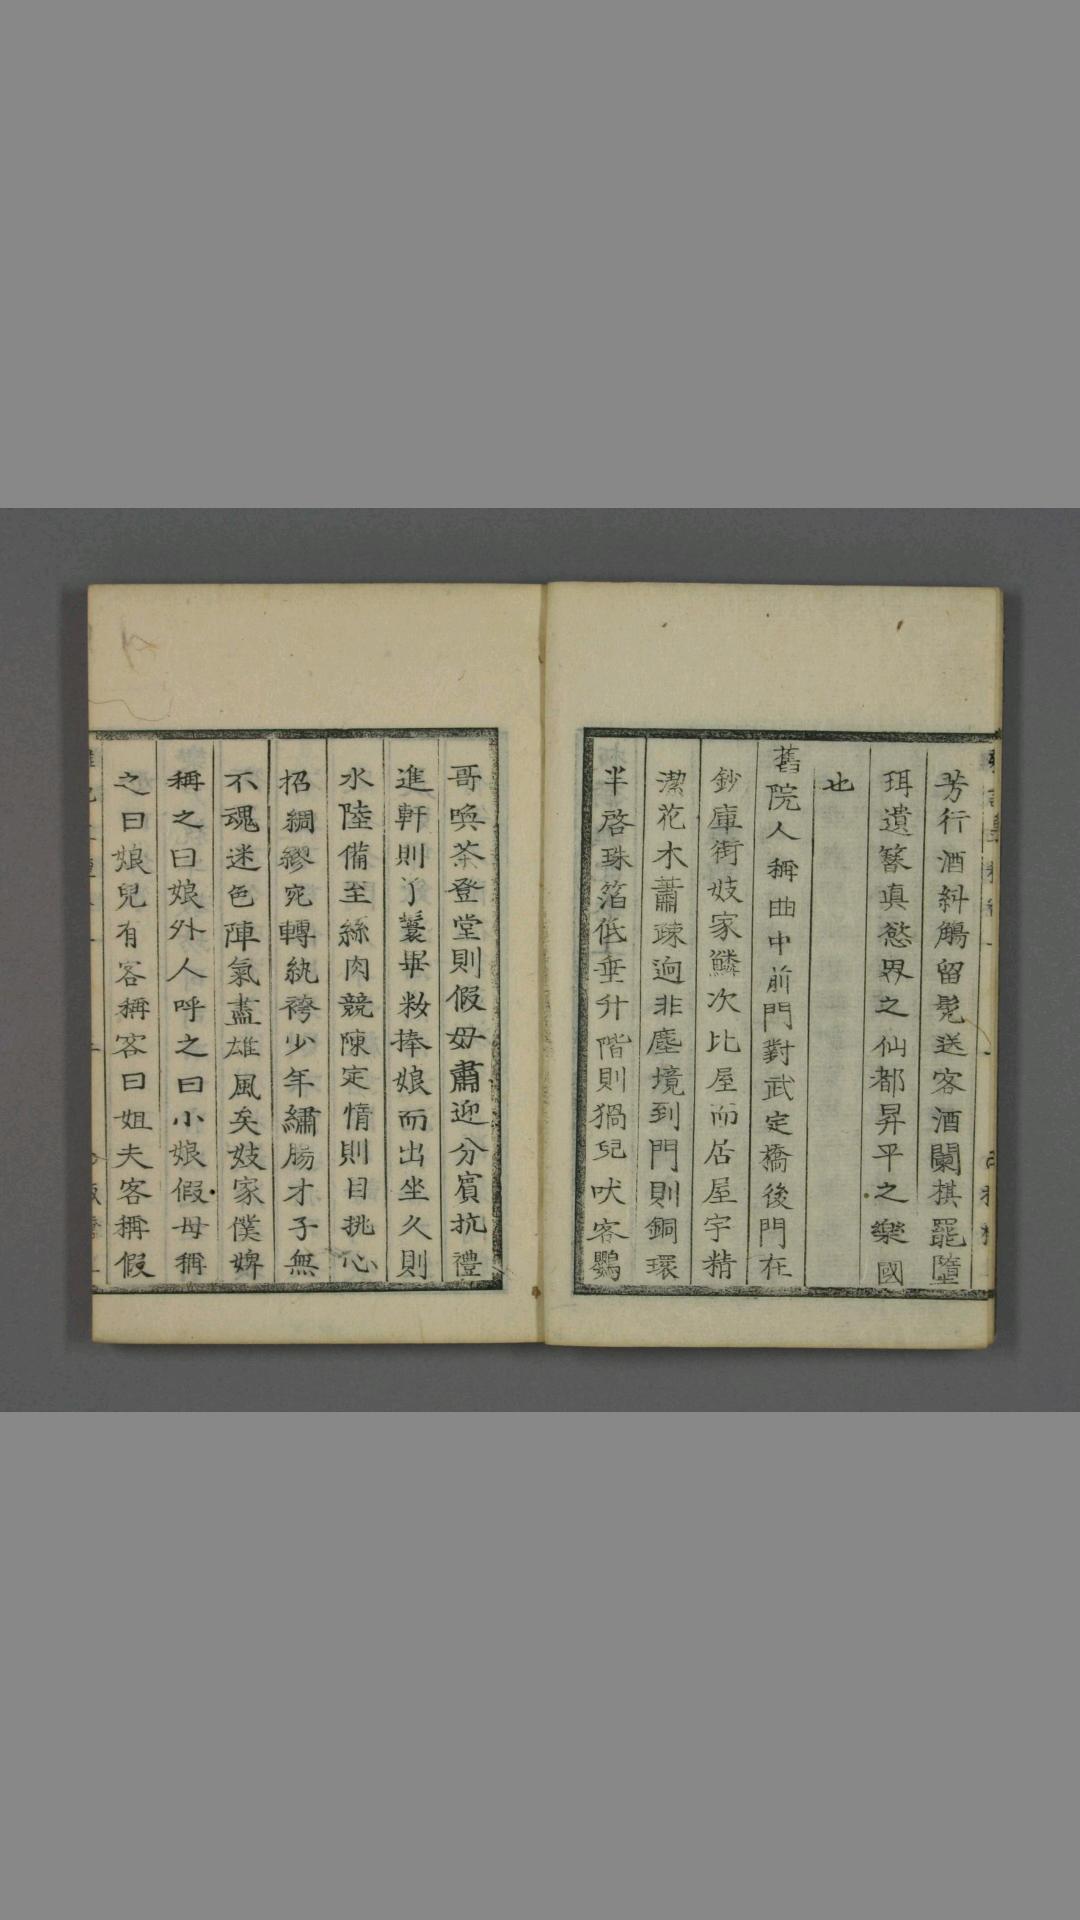 芳行酒糾觴留髡送客酒闌棋罷墮
珥遺簪真慾界之仙都昇平之樂國
也
舊院人稱曲中前門對武定橋後門在
鈔庫街妓家鱗次比屋而居屋宇精
潔花木蕭疎逈非塵境到門則銅環
半啓珠箔低垂升階則猧兒吠客鸚
哥喚茶登堂則假母肅迎分賓抗禮
進軒則丫鬟畢粧捧娘而出坐久則
水陸備至絲肉競陳定情則目挑心
招綢繆宛轉紈袴少年繡腸才子無
不魂迷色陣氣盡雄風矣妓家僕婢
稱之曰娘外人呼之曰小娘假母稱
之曰娘兒有客稱客曰姐夫客稱假